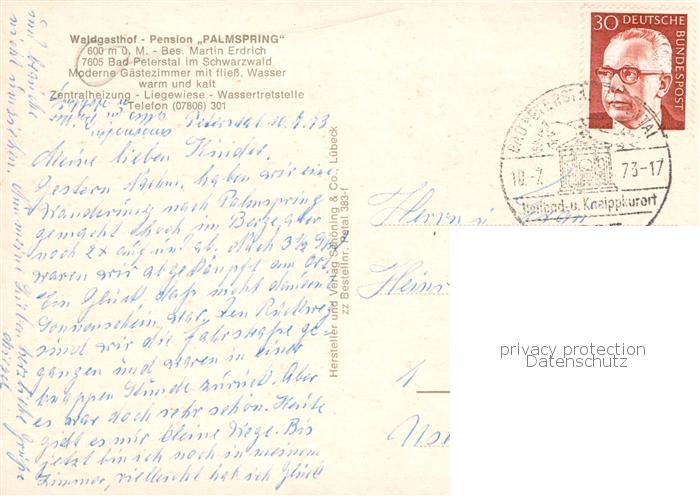 Waldgasthof - Pension „PALMSPRING"
600 m ü. M. - Bes. Martin Erdrich
7605 Bad Peterstal im Schwarzwald
Moderne Gästezimmer mit fließ. Wasser
warm und kalt
Zentralheizung - Liegewiese - Wassertretstelle
Telefon (07806) 301
Peterstal 10.7.73
Meine lieben Kinder.
Gestern Nachm. haben wir eine
Wanderung nach Palmspring
gemacht hoch im Berge aber
noch 2x auf und ab. Nach 3½ Std
waren wir abgekämpft am Ort
Ein Glück, daß nicht dauernd
Sonnenschein war. Den Rückweg
sind wir die Fahrstraße ge-
gangen und waren in einer
knappen Stunde zurück. Aber
es war doch sehr schön. Heute
giebt es nur kleine Wege. Bis
jetzt bin ich noch in meinem
Zimmer, vielleicht hab ich Glück
und brauche
nicht umziehen.
herzliche Grüße
Hersteller und Verlag Schöning & Co., Lübeck
zz Bestellnr. Petal 383-f
30 DEUTSCHE
BUNDESPOST
BAD PETERSTAL
10.-7. 73-17
Heilbad- u. Kneippkurort
Herrn u
Heinr
1
privacy protection
Datenschutz